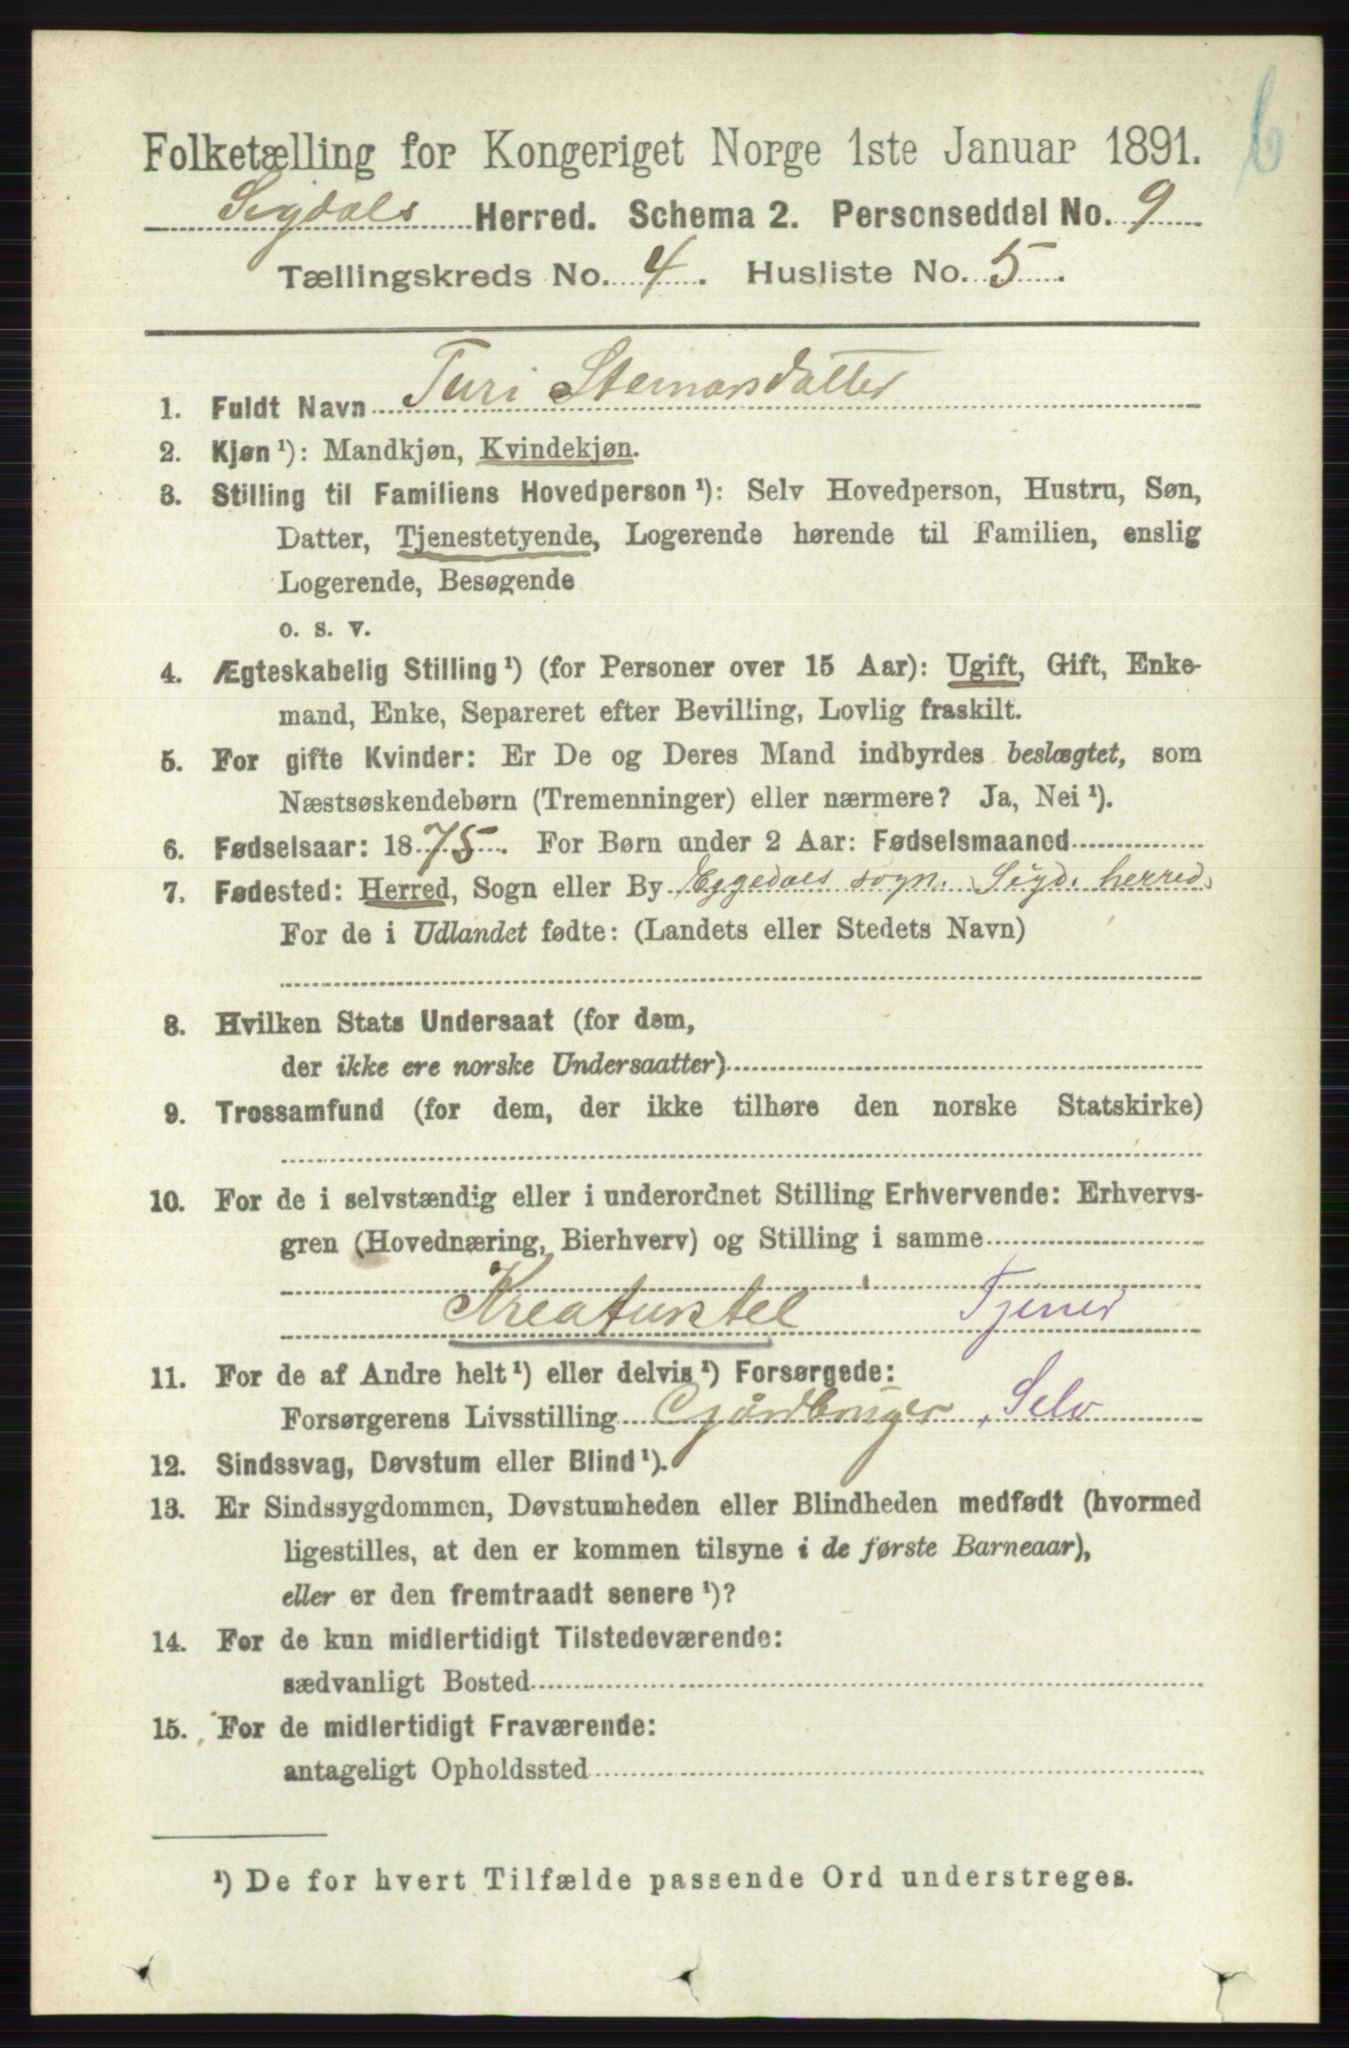 6
Folketælling for Kongeriget Norge 1ste Januar 1891.
Sigdals Herred. Schema 2. Personseddel No. 9
Tællingskreds No. 4. Husliste No. 5.
1. Fuldt Navn Turi Steinarsdatter
2. Kjøn ¹): Mandkjøn, Kvindekjøn.
3. Stilling til Familiens Hovedperson ¹): Selv Hovedperson, Hustru, Søn,
Datter, Tjenestetyende, Logerende hørende til Familien, enslig
Logerende, Besøgende
o. s. v.
4. Ægteskabelig Stilling ¹) (for Personer over 15 Aar): Ugift, Gift, Enke-
mand, Enke, Separeret efter Bevilling, Lovlig fraskilt.
5. For gifte Kvinder: Er De og Deres Mand indbyrdes beslægtet, som
Næstsøskendebørn (Tremenninger) eller nærmere? Ja, Nei ¹).
6. Fødselsaar: 1875. For Børn under 2 Aar: Fødselsmaaned
7. Fødested: Herred, Sogn eller By Eggedals sogn. Sigd. herred,
For de i Udlandet fødte: (Landets eller Stedets Navn)
8. Hvilken Stats Undersaat (for dem,
der ikke ere norske Undersaatter)
9. Trossamfund (for dem, der ikke tilhøre den norske Statskirke)
10. For de i selvstændig eller i underordnet Stilling Erhvervende: Erhvervs-
gren (Hovednæring, Bierhverv) og Stilling i samme
Kreaturstel Tjener
11. For de af Andre helt ¹) eller delvis ¹) Forsørgede:
Forsørgerens Livsstilling Gårdbruger, Selv
12. Sindssvag, Døvstum eller Blind ¹).
13. Er Sindssygdommen, Døvstumheden eller Blindheden medfødt (hvormed
ligestilles, at den er kommen tilsyne i de første Barneaar),
eller er den fremtraadt senere ¹)?
14. For de kun midlertidigt Tilstedeværende:
sædvanligt Bosted
15. For de midlertidigt Fraværende:
antageligt Opholdssted
¹) De for hvert Tilfælde passende Ord understreges.